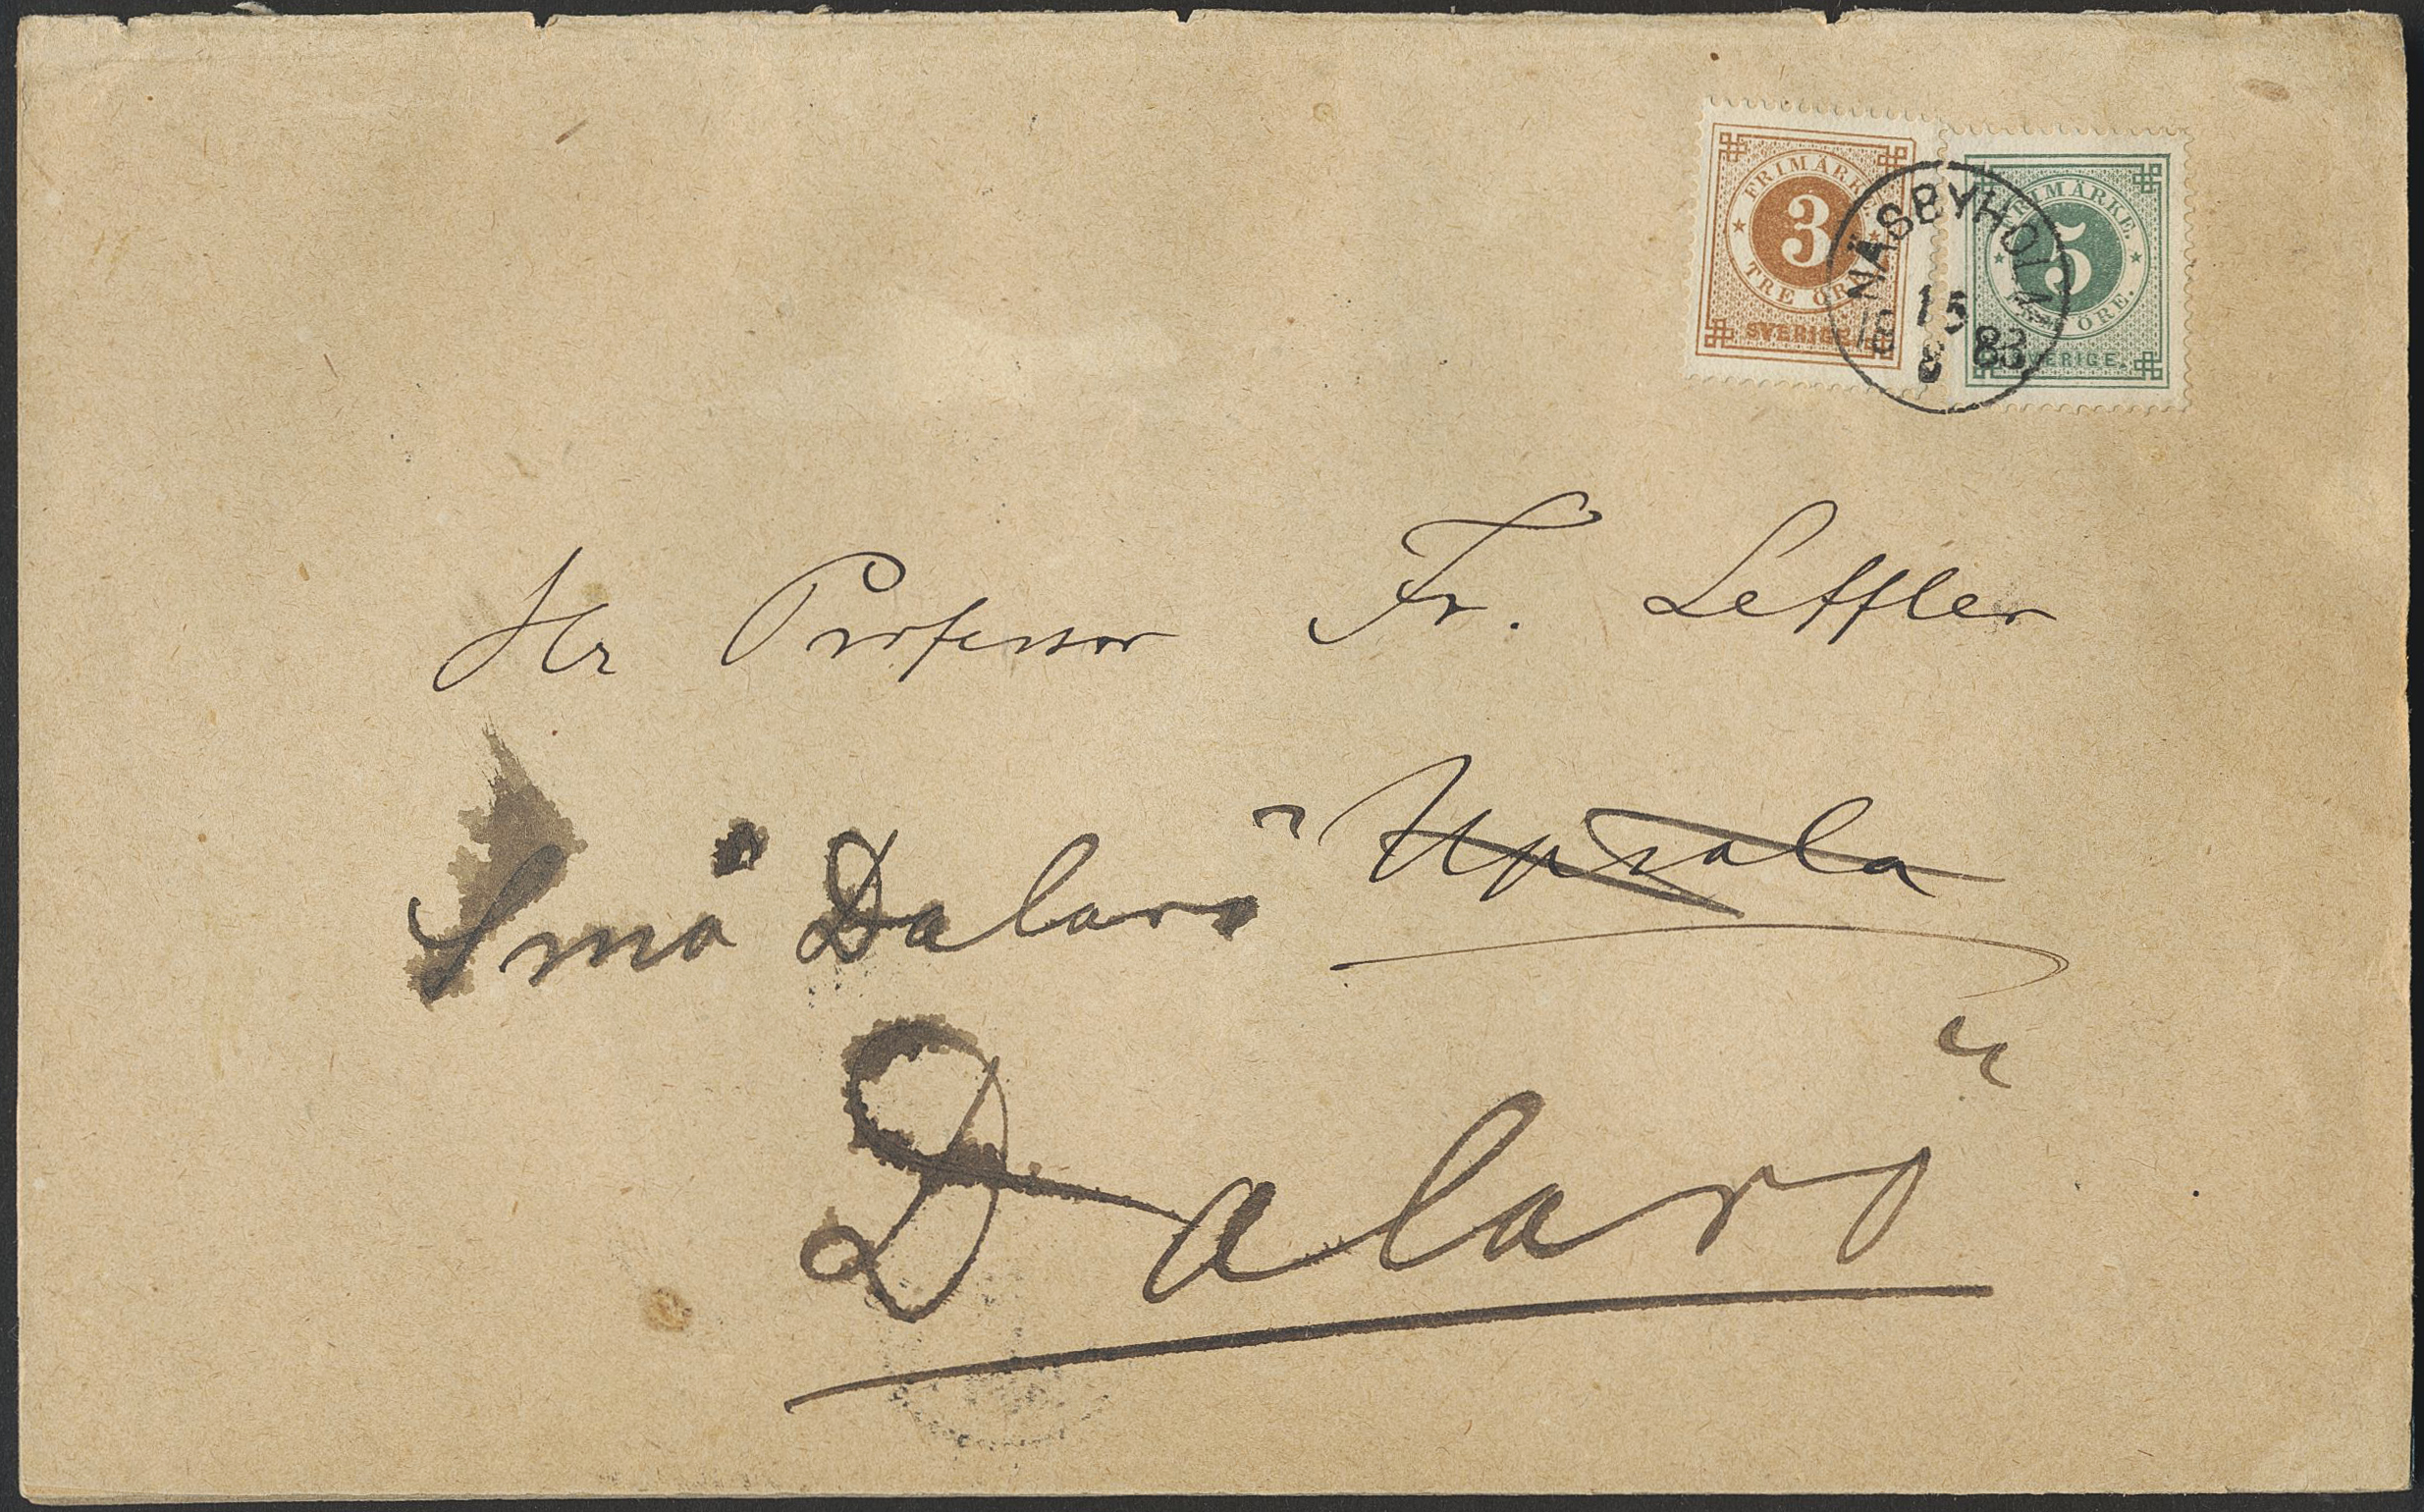 FRIMÄRKE
3
TRE ÖRE
SVERIGE.
FRIMÄRKE.
5
ÖRE.
SVERIGE.
NÄSBYHOLM
15
8 83
Hr Professor Fr. Leffler
Upsala
Små Dalarö
Dalarö